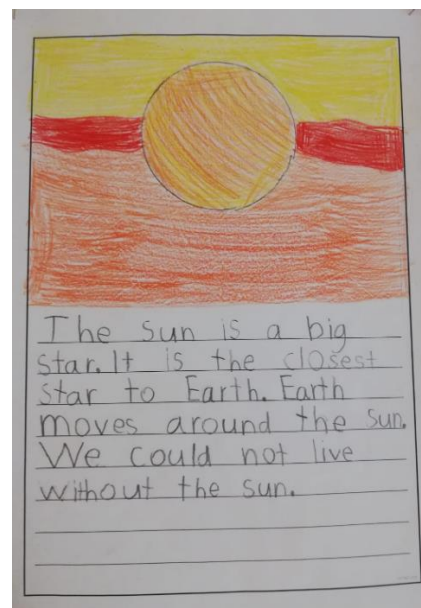 The sun is a big
star. It is the closest
star to Earth. Earth
moves around the sun.
We could not live
without the sun.